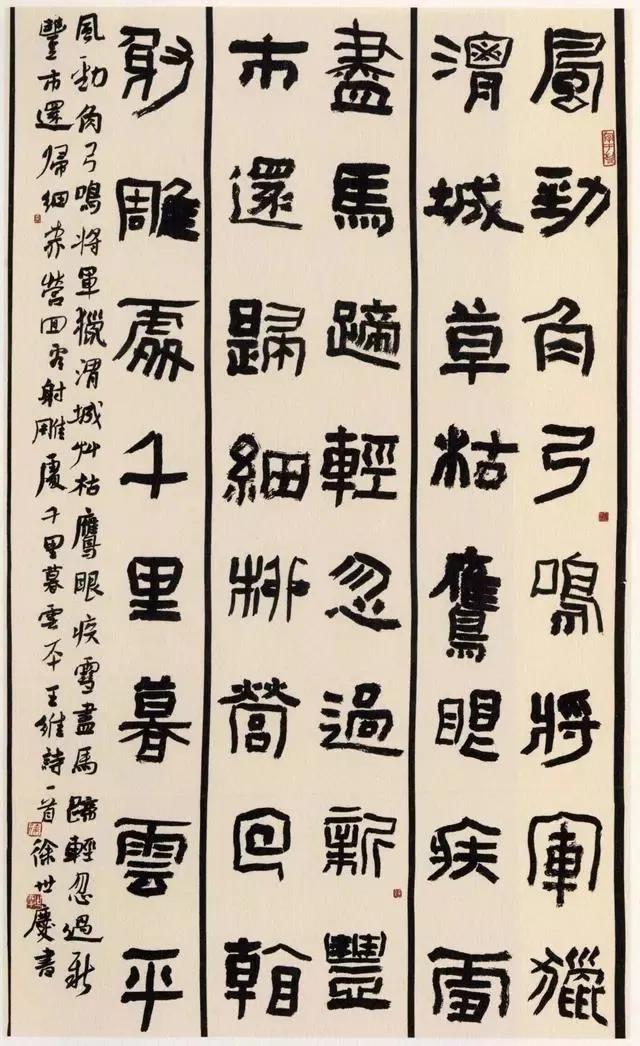 風勁角弓鳴將軍獵
渭城草枯鷹眼疾雪
盡馬蹄輕忽過新豐
市還歸細柳營回看
射雕處千里暮雲平
風勁角弓鳴將軍獵渭城艸枯鷹眼疾雪盡馬蹄輕忽過新
豐市還歸細柳營回看射雕處千里暮雲平王維詩一首徐世慶書